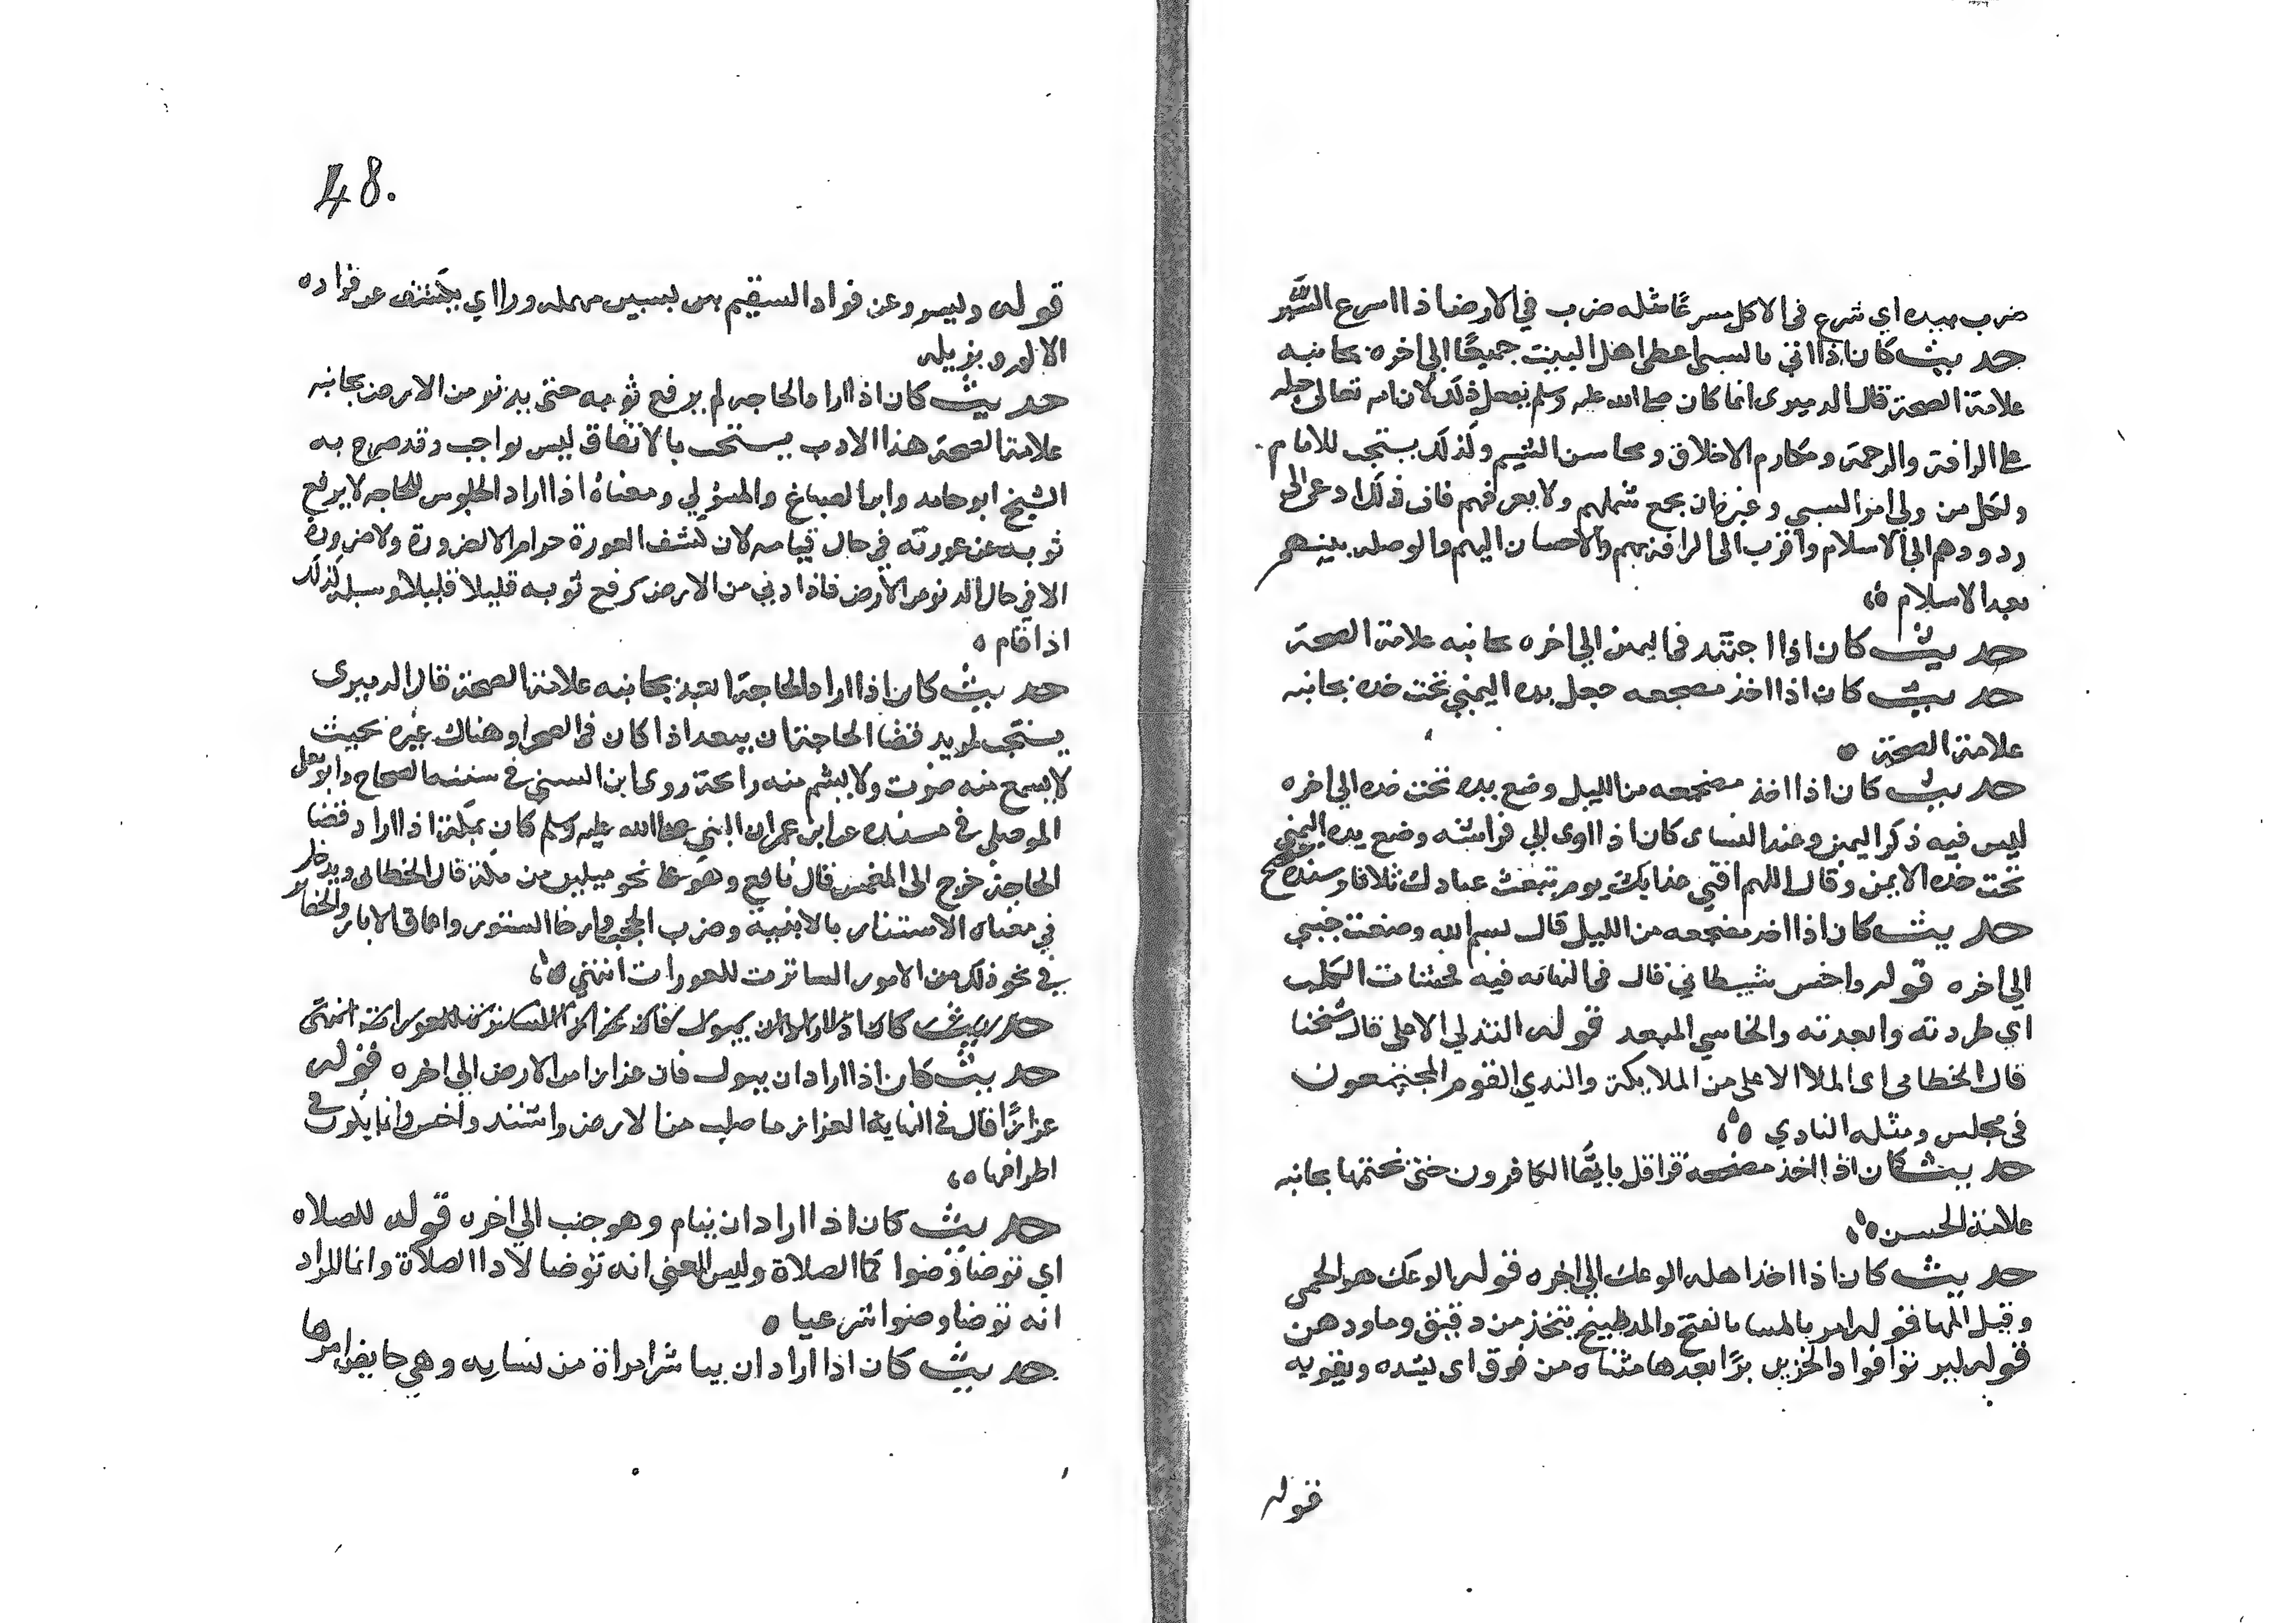 ضرب بيده اي شرع في الاكل مسرعا مثله ضرب في الارض اذا اسرع السير
حديث كان اذا اتي بالسبي اعطى اهل البيت جميعا الي اخره بجانبه
علامة الصحة قال الدميري انما كان صلى الله عليه وسلم يفعل ذلك لان الله تعالى جبله
على الرافة والرحمة ومكارم الاخلاق ومحاسن الشيم ولذلك يستحب للامام
ولكل من ولي امر السبي وغيره ان يجمع شملهم ولا يفرقهم فان ذلك ادعى الى
ردودهم الي الاسلام واقرب الى الرافة بهم والاحسان اليهم والوصلة بينهم
بعد الاسلام
حديث كان اذا اجتهد في اليمين الي اخره بجانبه علامة الصحة
حديث كان اذا اخذ مضجعه جعل يده اليمني تحت خده بجانبه
علامة الصحة
حديث كان اذا اخذ مضجعه من الليل وضع يده تحت خده الي اخره
ليس فيه ذكر اليمين وعند النساى كان اذا اوى الي فراشه وضع يده اليمني
تحت خده الايمن وقال اللهم اقني عذابك يوم تبعث عبادك ثلاثا وسنده صحيح
حديث كان اذا اخذ مضجعه من الليل قال بسم الله وضعت جنبي
الي اخره قوله واخس شيطاني قال في النهاية فيه فخسات الكلب
اي طردته وابعدته والخاسي المبعد قوله الندي الاعلى قال شيخنا
قال الخطابي اى الملا الاعلى من الملايكة والندي القوم المجتمعون
في مجلس ومثله النادي
حديث كان اذا اخذ مضجعه قرا قل يا يها الكافرون حتى يختمها بجانبه
علامة الحسن
حديث كان اذا اخذ اهله الوعك الي اخره قوله الوعك هو الحمى
وقيل المها قوله امر بالحسا بالفتح والمد طبيخ يتخذ من دقيق وما ودهن
قوله ليرتوا فواد الحزين برا بعدها مثناه من فوق اى يشده ويقويه
قوله
48.
قوله ويسرو عن فواد السقيم بسين مهمله ورا اي يكشف عن فواده
الالم ويزيله
حديث كان اذا اراد الحاجه لم يرفع ثوبه حتى يدنو من الارض بجانبه
علامة الصحة هذا الادب يستحب بالاتفاق ليس بواجب وقد صرح به
الشيخ ابو حامد وابن الصباغ والمتولي ومعناه اذا اراد الجلوس للحاجه لا يرفع
ثوبه عن عورته في حال قيامه لان كشف العورة حرام الا لضرورة ولا ضرورة
الا في حال الدنو من الارض فاذا دني من الارض رفع ثوبه قليلا قليلا وسبله كذلك
اذا قام
حديث كان اذا اراد الحاجة ابعد بجانبه علامة الصحة قال الدميرى
يستحب لمريد قضا الحاجة ان يبعد اذا كان في الصحرا وهناك غيره بحيث
لا يسمع منه صوت ولا يشم منه رايحة روى ابن السني في سننه الصحاح وابو يعلى
الموصلي في مسنده عن ابن عمر ان النبي صلى الله عليه وسلم كان بمكة اذا اراد قضا
الحاجة خرج الى المغمس قال نافع وهو على نحو ميلين من مكة قال الخطابي ويدخل
في معناه الاستتار بالابنية وضرب الحجب وارخا الستور واعماق الابار والحفاير
في نحو ذلك من الامور الساترت للعورات انتهي
حديث كان اذا اراد ان يبول فان عزازا الساترة للعورات انتهى
حديث كان اذا اراد ان يبول فان عزازا من الارض الي اخره قوله
عزازا قال في النهاية العزاز ما صلب من الارض واشتد واخشن وانما يكون في
اطرافها
حديث كان اذا اراد ان ينام وهو جنب الي اخره قوله للصلاه
اي توضا وضوا كما الصلاة وليس المعني انه توضا لادا الصلاة وانما المراد
انه توضا وضوا شرعيا
حديث كان اذا اراد ان يباشر امراة من نسايه وهي حايض امرها